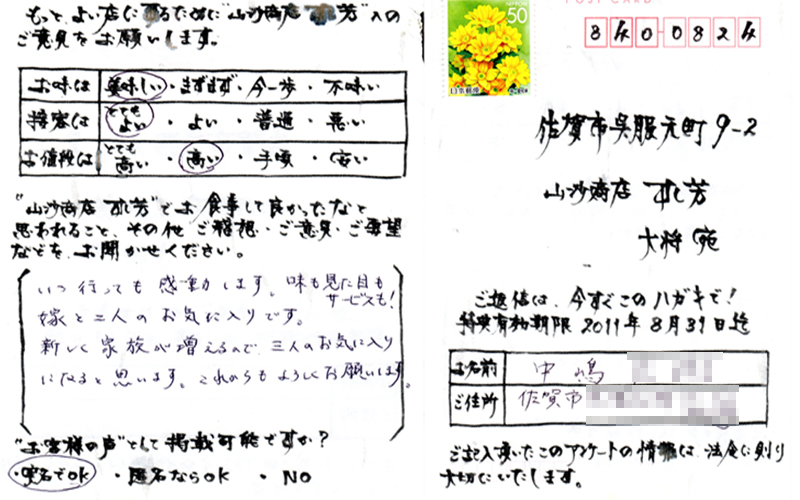 もっと、よい店になるために"山沙商店 すし芳"への
ご意見をお願いします。
お味は 美味しい・まずまず・今一歩・不味い
接客は とてもよい・よい・普通・悪い
お値段は とても高い・高い・手頃・安い
"山沙商店 すし芳"でお食事して良かったなと
思われること、その他ご感想・ご意見・ご要望
などを、お聞かせください。
いつ行っても感動します。味も見た目も
サービスも!
嫁と二人のお気に入りです。
新しく家族が増えるので、三人のお気に入り
になると思います。これからもよろしくお願いします。
"お客様の声"として掲載可能ですか?
・実名でOK ・匿名ならOK ・NO
POST CARD
NIPPON
50
日本郵便
8400824
佐賀市呉服元町9-2
山沙商店 すし芳
大将 宛
ご返信は、今すぐこのハガキで!
特典有効期限 2011年8月31日迄
お名前 中嶋
ご住所 佐賀市
ご記入頂いたこのアンケートの情報は、法令に則り
大切にいたします。